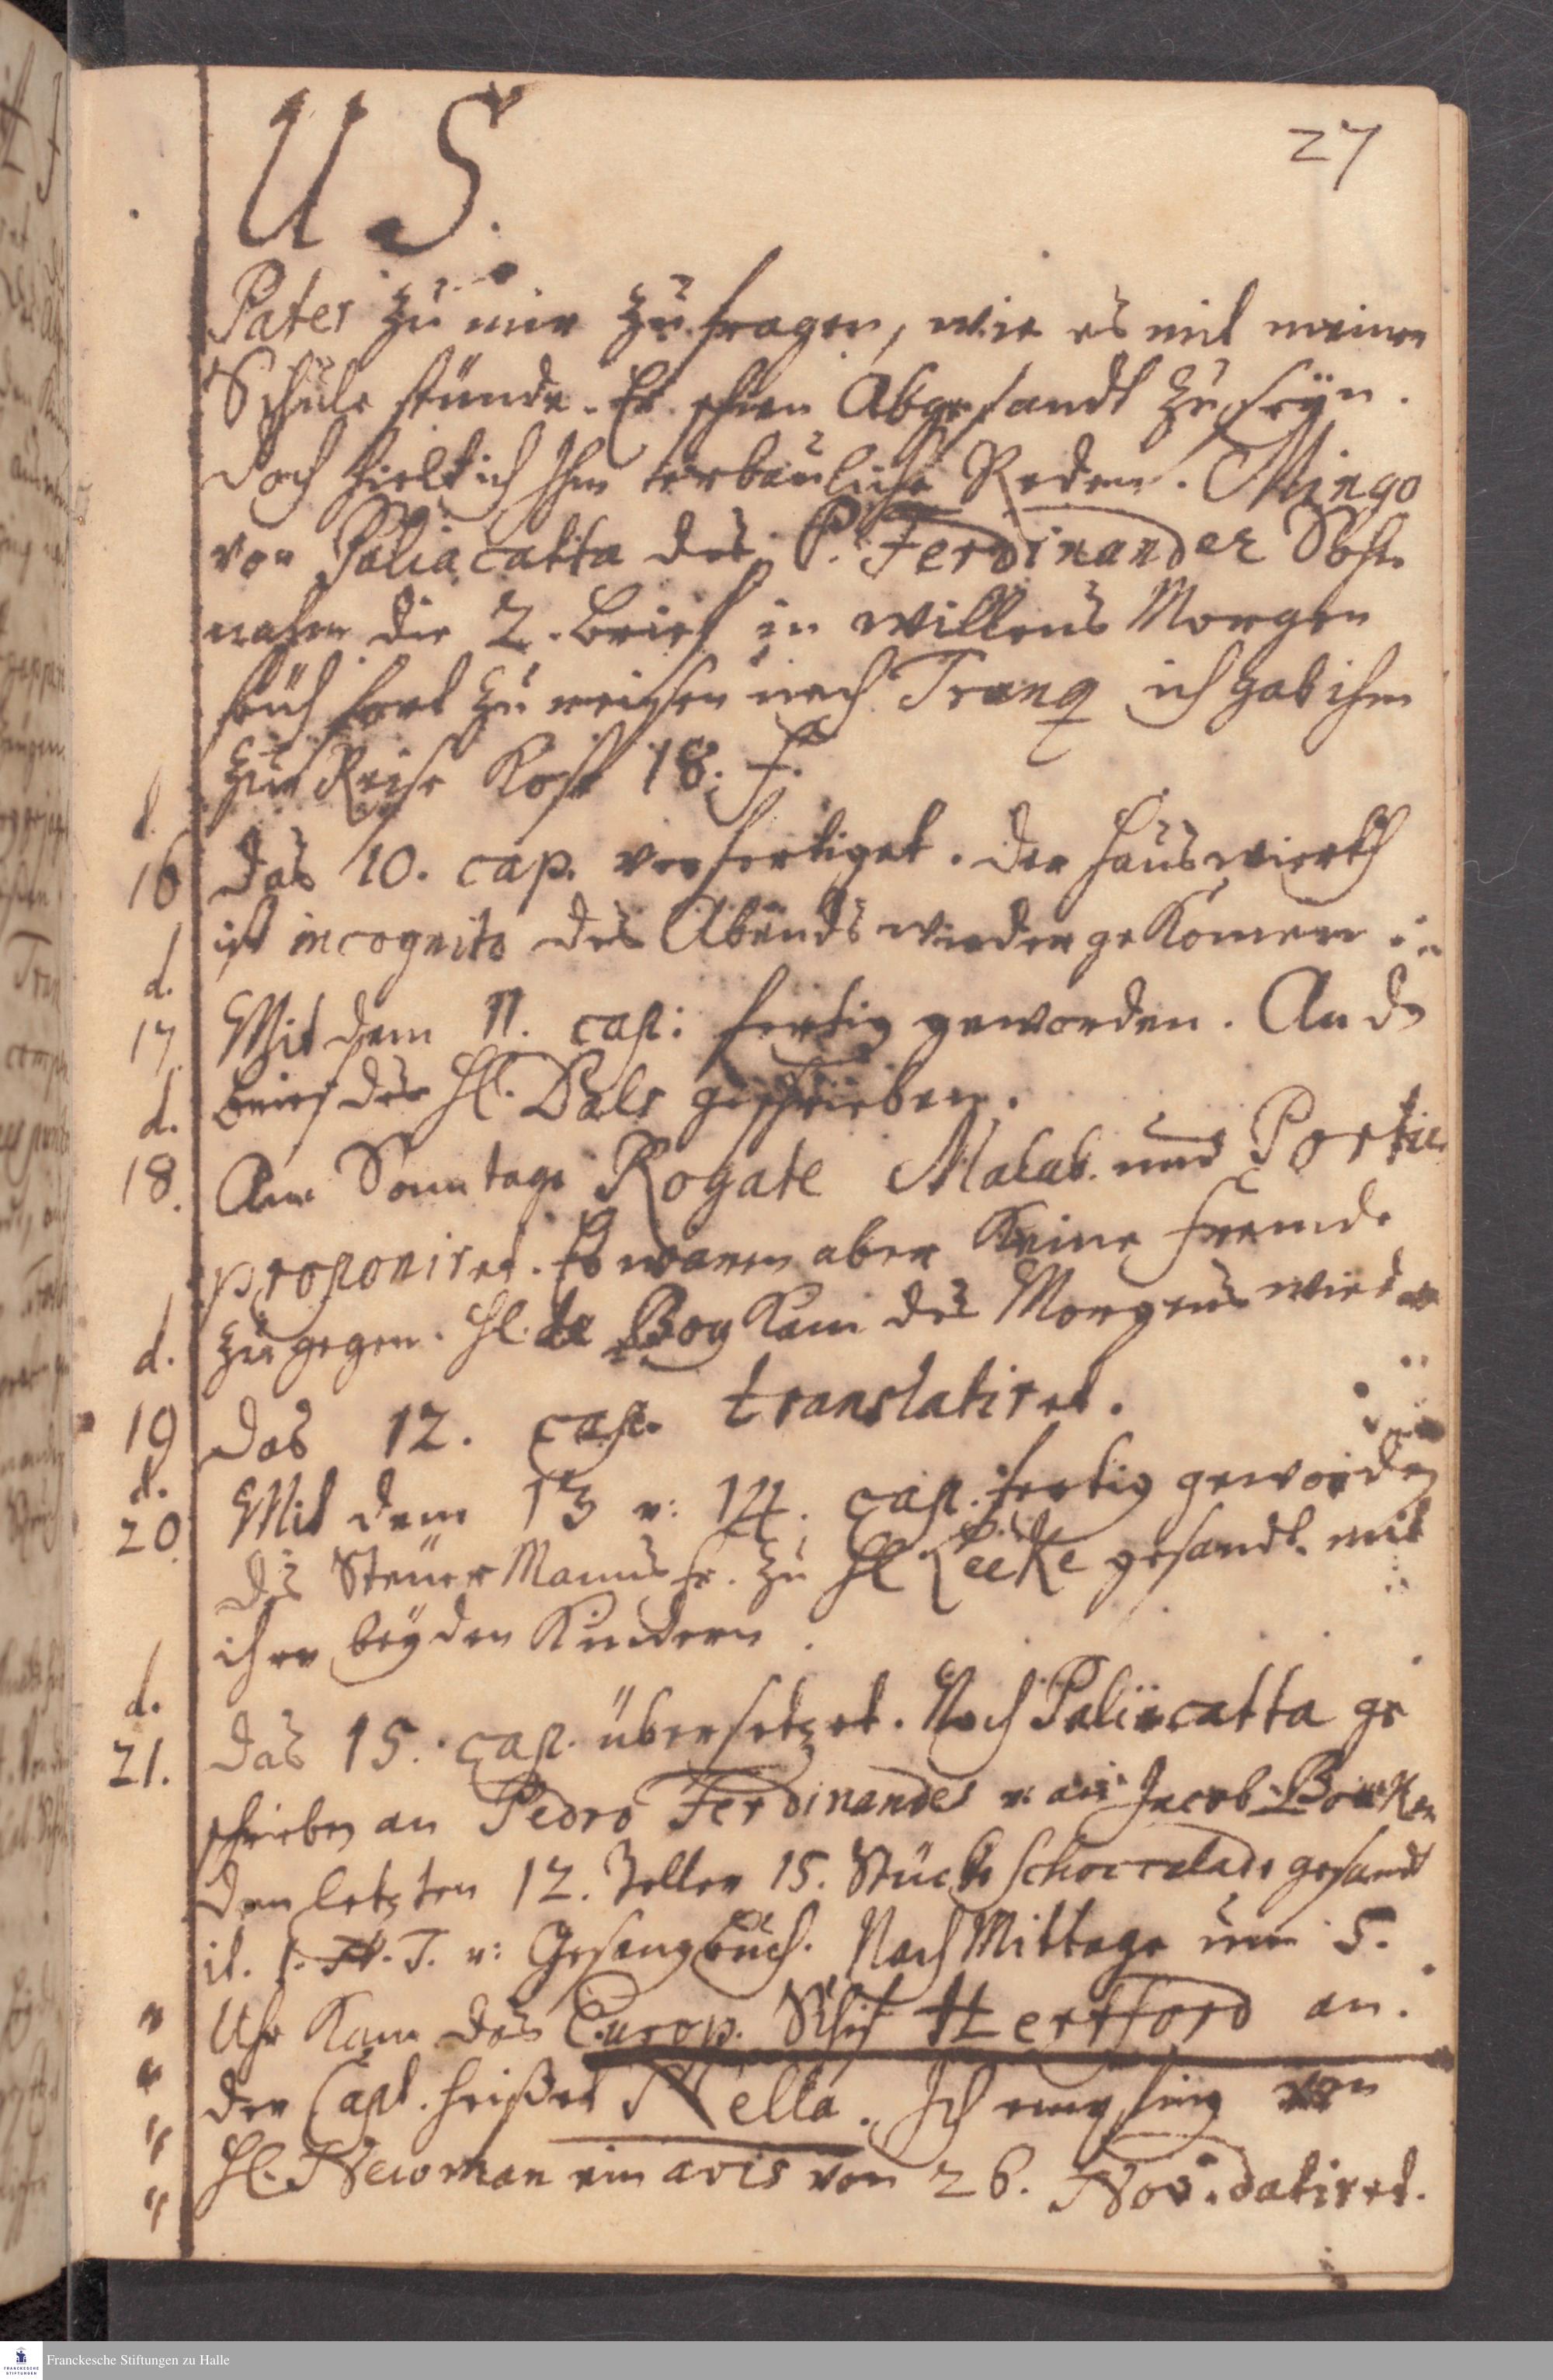 US.
27
Pater zu mir zu fragen, wie es mit meiner
Schule stünde. Er schien Abgesandt zu seÿn.
doch hielt ich Ihm erbauliche Reden. Mingo
von Paliacatta des P. Ferdinander
nahm die 2. brief in willens Morgen
früh fort zu reisen nach Tranq ich gab ihm
zur Reise Kost 18. f.
d.
16 Das 10. cap. verfertiget. Der Hauswierth
ist incognito des Abends wieder gekomen
d.
17. Mit dem 11. cap: fertig geworden. An d
brief des H. Dals geschrieben.
d.
18. Am Sonntage Rogate Malab. und Portu
proponiret. Es waren aber Keine fremde
zu gegen. H. de Boy Kam des Morgens wieder
d.
19 Das 12. cap. translatiret.
d.
20. Mit dem 13 u: 14. cap. fertig geworden
des SteuerManns fr. zu H Leeke gesandt. mit
ihren beÿden Kindern.
d.
21. Das 15. cap. übersetzet. Nach Paliacatta ge
schrieben an Pedro Ferdinandes u. an Jacob
Den letzten 12. Teller 15. Stücke Schoccolade gesandt
it. 1. N. T. u: Gesangbuch. NachMittage um 5.
Uhr Kam das Europ. Schif Hertford an.
der Capt. heißet Nella. Ich empfing von
H. Newman ein avis von 26. Nov. datiret.
Franckesche Stiftungen zu Halle